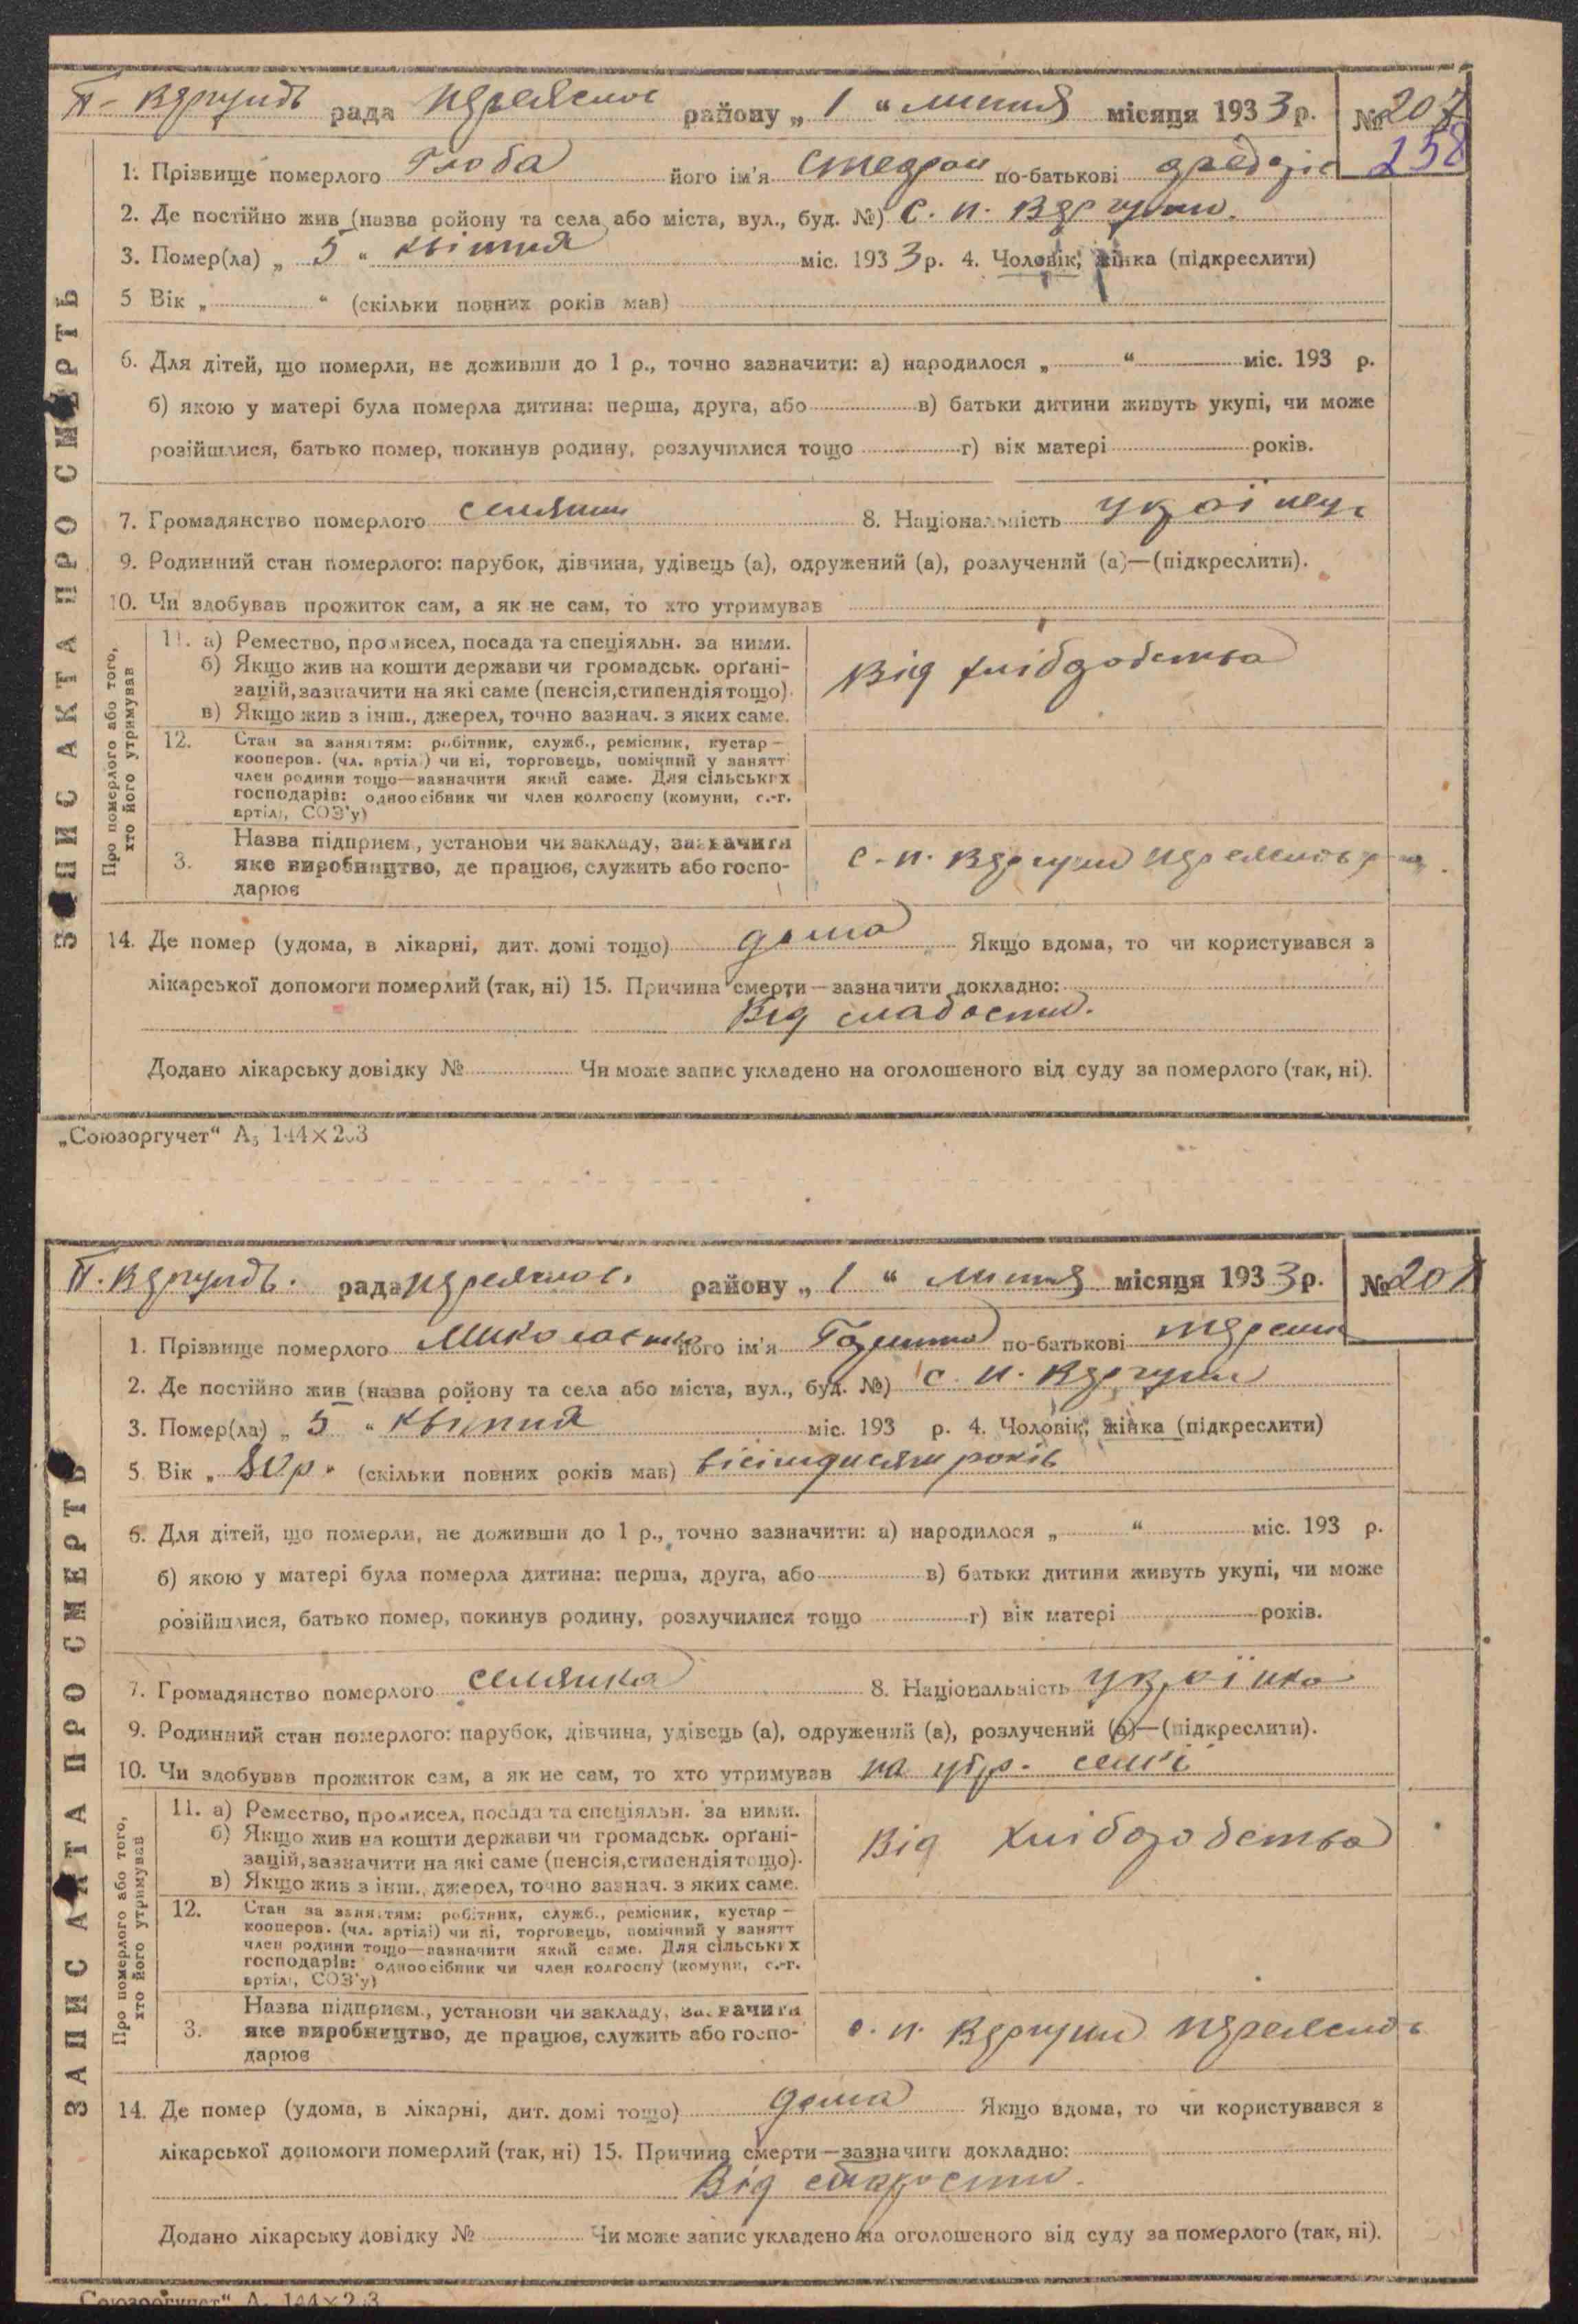 П- Вергунів рада Переяслов району „ 1 “ липня місяця 1933 р. № 207
258
1. Прізвище померлого Глоба його ім'я Степан по-батькові
2. Де постійно жив (назва ройону та села або міста, вул., буд. №) с. п. Вергуни.
3. Помер(ла) „ 5 “ квітня міс. 1933 р. 4. Чоловік, жінка (підкреслити)
5 Вік „ “ (скільки повних років мав)
6. Для дітей, що померли, не доживши до 1 р., точно зазначити: а) народилося „ “ міс. 193 р.
б) якою у матері була померла дитина: перша, друга, або в) батьки дитини живуть укупі, чи може
розійшлися, батько помер, покинув родину, розлучилися тощо г) вік матері років.
7. Громадянство померлого селянин 8. Національність україн
9. Родинний стан померлого: парубок, дівчина, удівець (а), одружений (а), розлучений (а)—(підкреслити).
10. Чи здобував прожиток сам, а як не сам, то хто утримував
Про померлого або того,
хто його утримував
11. а) Ремество, промисел, посада та спеціяльн. за ними.
б) Якщо жив на кошти держави чи громадськ. орґані-
зацій, зазначити на які саме (пенсія, стипендія тощо).
в) Якщо жив з інш., джерел, точно зазнач. з яких саме.
Від хлібодобства
12. Стан за заняттям: робітник, служб., ремісник, кустар —
кооперов. (чл. артілі) чи ні, торговець, помічний у занятт
член родини тощо—зазначити який саме. Для сільських
господарів: одноосібник чи член колгоспу (комуни, с.-г.
артілі, СОЗ'у)
3. Назва підприєм., установи чи закладу, зазначити
яке виробництво, де працює, служить або госпо-
дарює
с. п. Вергуни Переяслов р-н.
14. Де помер (удома, в лікарні, дит. домі тощо) дома Якщо вдома, то чи користувався з
лікарської допомоги померлий (так, ні) 15. Причина смерти—зазначити докладно:
Від слабости.
Додано лікарську довідку № Чи може запис укладено на оголошеного від суду за померлого (так, ні).
ЗАПИС АКТА ПРО СМЕРТЬ
„Союзоргучет“ А5 144×203
П. Вергунів. рада Переяслов. району „ 1 “ липня місяця 1933 р. № 208
1. Прізвище померлого його ім'я по-батькові
2. Де постійно жив (назва ройону та села або міста, вул., буд. №) с. п. Вергуни
3. Помер(ла) „ 5 “ квітня міс. 193 р. 4. Чоловік, жінка (підкреслити)
5. Вік „ 80 р “ (скільки повних років мав) вісімдисят років
6. Для дітей, що померли, не доживши до 1 р., точно зазначити: а) народилося „ “ міс. 193 р.
б) якою у матері була померла дитина: перша, друга, або в) батьки дитини живуть укупі, чи може
розійшлися, батько помер, покинув родину, розлучилися тощо г) вік матері років.
7. Громадянство померлого селянка 8. Національність українка
9. Родинний стан померлого: парубок, дівчина, удівець (а), одружений (а), розлучений (а)—(підкреслити).
10. Чи здобував прожиток сам, а як не сам, то хто утримував на утр. сем'ї
Про померлого або того,
хто його утримував
11. а) Ремество, промисел, посада та спеціяльн. за ними.
б) Якщо жив на кошти держави чи громадськ. орґані-
зацій, зазначити на які саме (пенсія, стипендія тощо).
в) Якщо жив з інш., джерел, точно зазнач. з яких саме.
Від хлібодобства
12. Стан за заняттям: робітник, служб., ремісник, кустар —
кооперов. (чл. артілі) чи ні, торговець, помічний у занятт
член родини тощо—зазначити який саме. Для сільських
господарів: одноосібник чи член колгоспу (комуни, с.-г.
артілі, СОЗ'у)
3. Назва підприєм., установи чи закладу, зазначити
яке виробництво, де працює, служить або госпо-
дарює
с. п. Вергуни Переяслов
14. Де помер (удома, в лікарні, дит. домі тощо) дома Якщо вдома, то чи користувався з
лікарської допомоги померлий (так, ні) 15. Причина смерти—зазначити докладно:
Від старости.
Додано лікарську довідку № Чи може запис укладено на оголошеного від суду за померлого (так, ні).
ЗАПИС АКТА ПРО СМЕРТЬ
„Союзоргучет“ А5 144×203